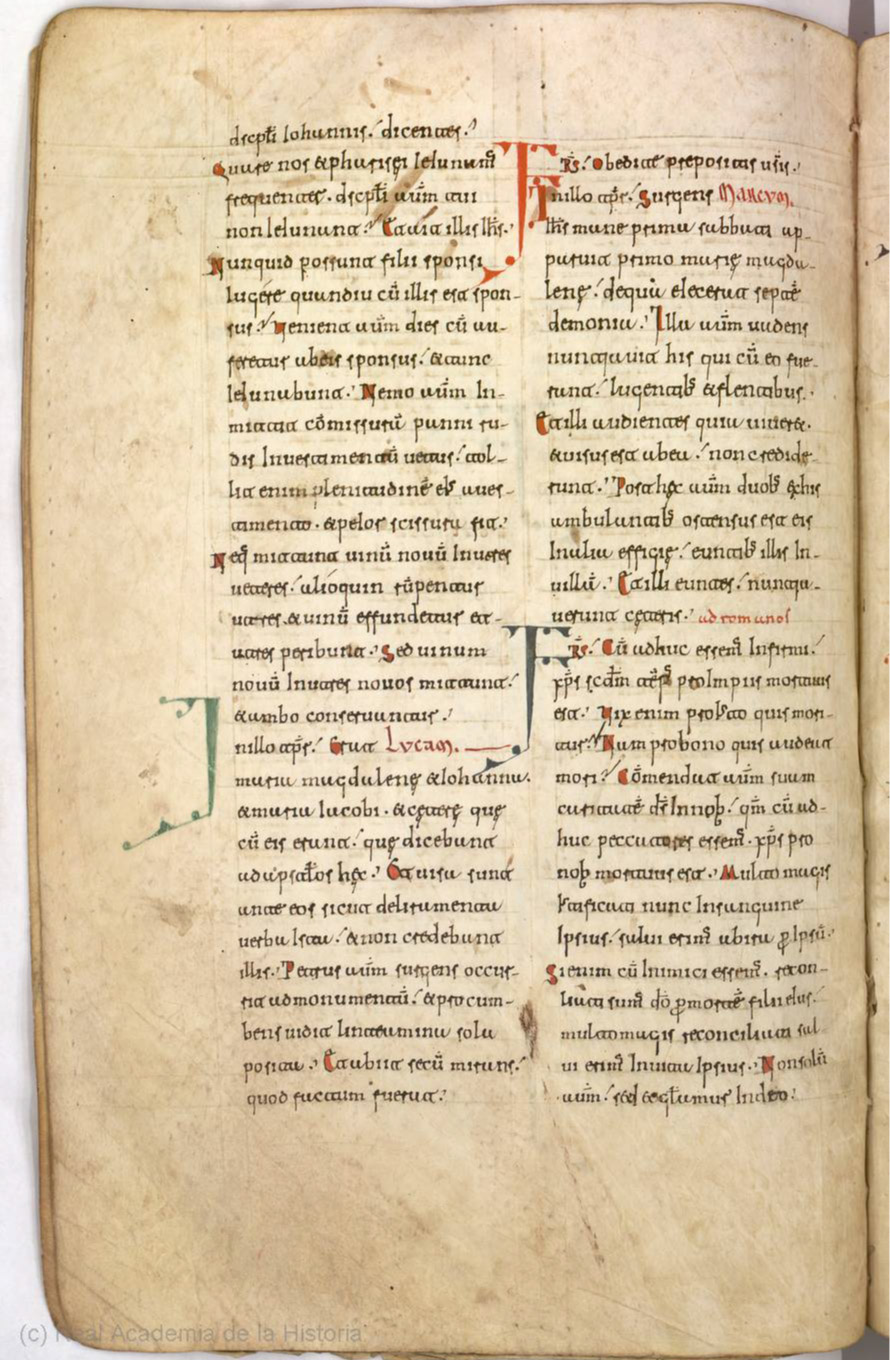 dscpłi Iohannis. dicentes.
Quare nos & pharisęi Ieiunamus
frequenter. dscpłi aūm tui
non Ieiunant? Et ait illis Ihs.
Nunquid possunt filii sponsi
lugere quandiu cū illis est spon-
sus? Uenient aūm dies cū au-
feretur ab eis sponsus. & tunc
Ieiunabunt. Nemo aūm In-
mittit cōmissurā panni ru-
dis In uestimentū uetus. tol-
lit enim plenitudinē eīs aues-
timento. & peior scissura fit.
Neq mittunt uinū nouū In utres
ueteres. alioquin rūpentur
utres. & uinū effundetur et
utres peribunt. Sed uinum
nouū In utres nouos mittunt.
& ambo conseruantur.
In illo tpre. Erat Lucam.
maria magdalenę & Iohanna.
& maria Iacobi. & cęterę quę
cū eis erant. quę dicebant
ad apstłos hęc. Et uisa sunt
ante eos sicut deliramenta
uerba Ista. & non credebant
illis. Petrus aūm surgens occur-
rit ad monumentū. & procum-
bens uidit linteamina sola
posita. Et abiit secū mirans.
quod factum fuerat.
FRS. Obedite prepositis uris.
In illo tpre. Surgens Marcum.
Ihs mane prima sabbati ap-
paruit primo marię magda-
lenę. de qua eiecerat septē
demonia. Illa aūm uadens
nuntiauit his qui cū eo fue-
rant. lugentibs & flentibus.
Et illi audientes quia uiueret.
& uisus est ab ea. non credide-
runt. Post hęc aūm duobs ex his
ambulantibs ostensus est eis
In alia effigie. euntibs illis In
uillā. Et illi euntes. nuntia-
uerunt cęteris. ad romanos
FRS. Cū adhuc essem̄ Infirmi.
xps scdm tēps pro Impiis mortuus
est. Uix enim pro Iusto quis mori-
tur. Nam pro bono quis audeat
mori? Cōmendat aūm suam
caritatē ds In nob. qm cū ad-
huc peccatores essem̄. xps pro
nob mortuus est. Multo magis
Iustificati nunc In sanguine
Ipsius. salui erim̄ ab ira p Ipsū.
Si enim cū Inimici essem̄. recon-
liati sum̄ do p mortē filii eius.
multo magis reconciliati sal-
ui erim̄ In uita Ipsius. Non solū
aūm. sed & głamur In deo.
(c) Real Academia de la Historia